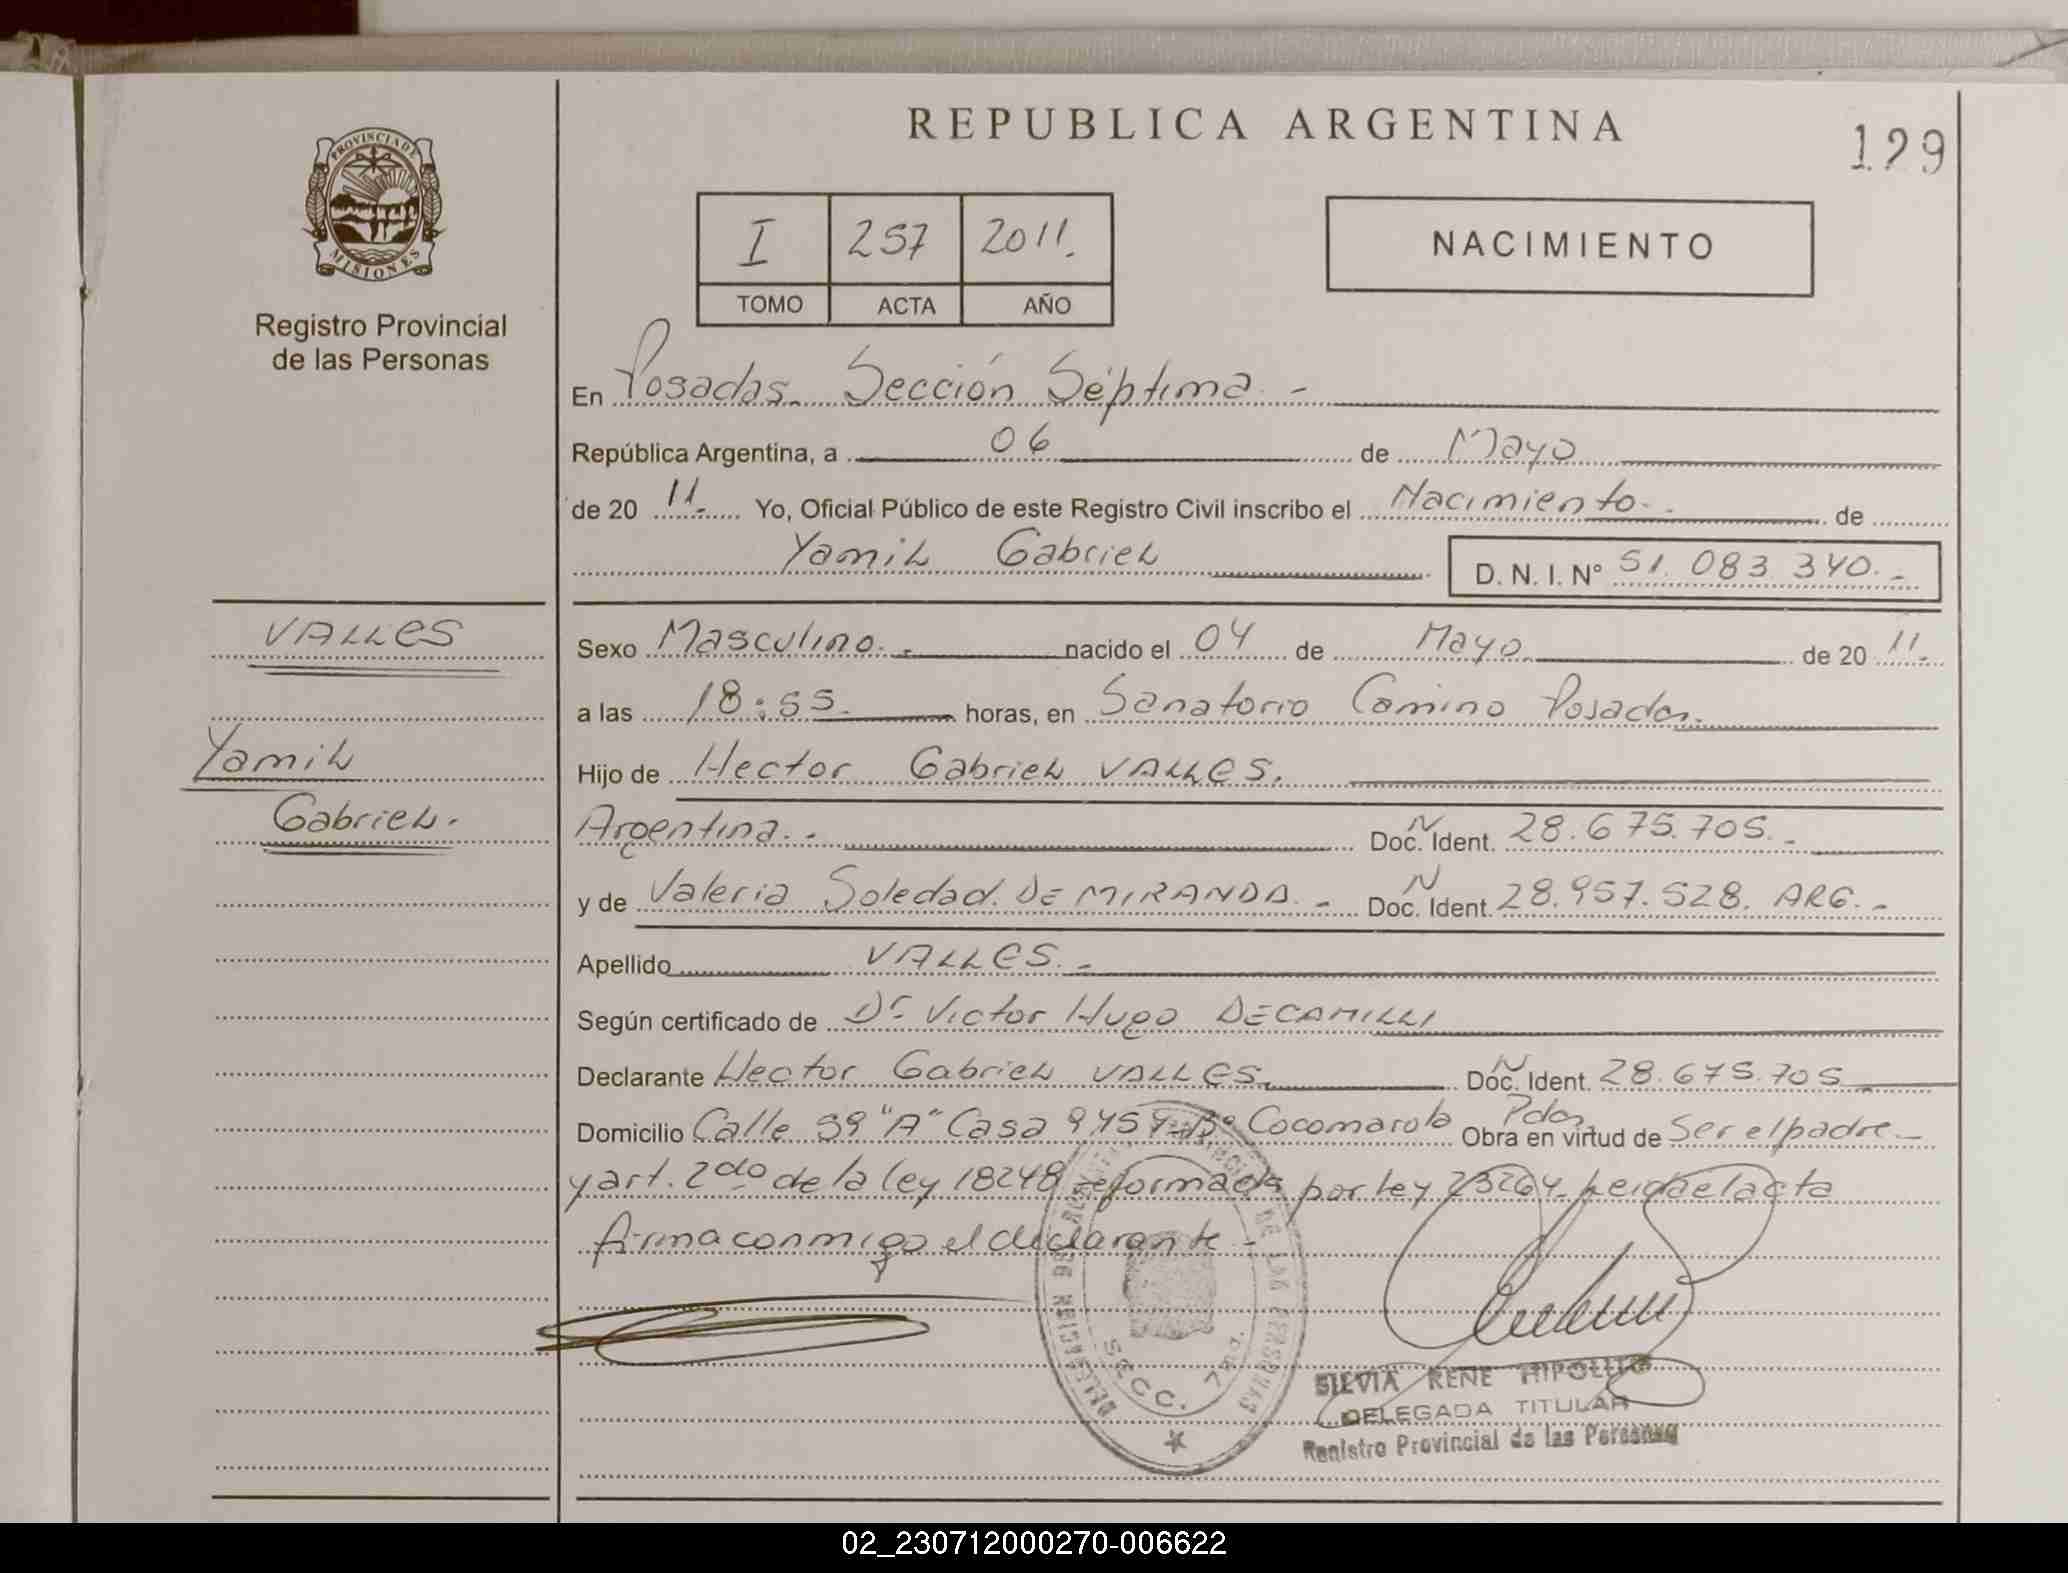 REPUBLICA ARGENTINA
129
PROVINCIA DE
MISIONES
Registro Provincial
de las Personas
I 257 2011.
TOMO ACTA AÑO
NACIMIENTO
En Posadas. Sección Séptima -
República Argentina, a 06 de Mayo
de 20 11. Yo, Oficial Público de este Registro Civil inscribo el Nacimiento. de
Yamil Gabriel D. N. I. N° 51.083.340.-
VALLES
Yamil
Gabriel.
Sexo Masculino.- nacido el 04 de Mayo de 20 11.
a las 18:55. horas, en Sanatorio Camino Posadas.
Hijo de Hector Gabriel VALLES.
Argentina.. Doc. N Ident. 28.675.705.-
y de Valeria Soledad. DE MIRANDA.- Doc. N Ident. 28.957.528. ARG.-
Apellido VALLES.-
Según certificado de Dr. Victor Hugo DECAMILLI
Declarante Hector Gabriel VALLES. Doc. N Ident. 28.675.705.
Domicilio Calle 59 "A" Casa 9457-B° Cocomarola Pdas. Obra en virtud de Ser el padre-
y art. 2do de la ley 18248 reformada por ley 23264. Leida el acta
firma conmigo el declarante-
SECC. 7ma.
SILVIA RENE HIPOLITO
DELEGADA TITULAR
Registro Provincial de las Personas
02_230712000270-006622